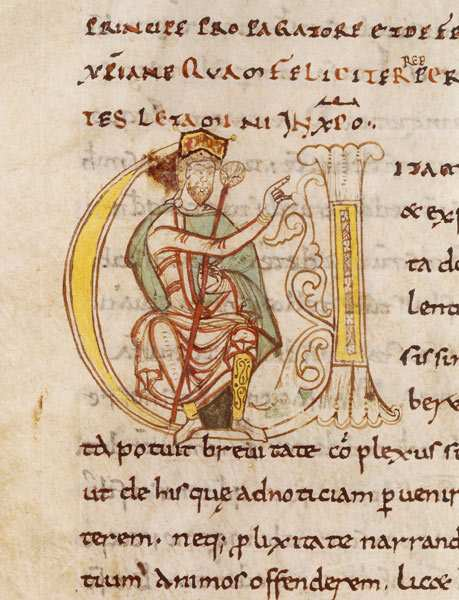 PRINCIPE PROPAGATORE ET DE FE
XPIANE QUAM FELICITER REP PER
TES LETAMINI IN XPO.
UITAM
& exp
ta do
lenti
sissim
bere
ta potuit breuitate cō plexus s
ut de his quę adnoticiam ꝑuenir
terem. neq; ꝓlixitate narrand
tium animos offenderem. licæ